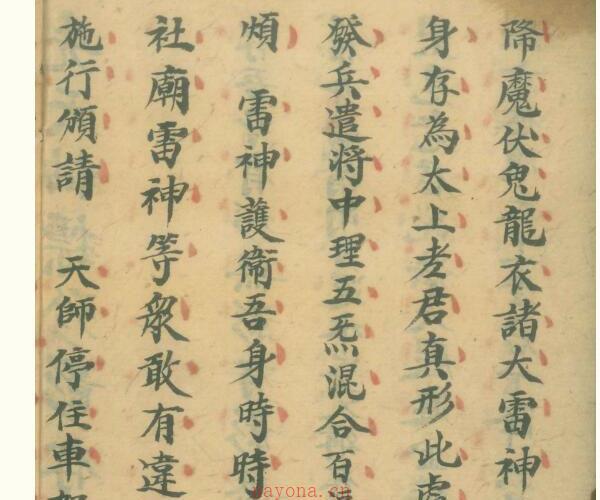 降魔伏鬼龍衣諸大雷神
身存為太上老君真形此
發兵遣將中理五炁混合百
煩 雷神護衛吾身時時
社廟雷神等衆敢有違
施行頒請 天師停住車
nayona.cn